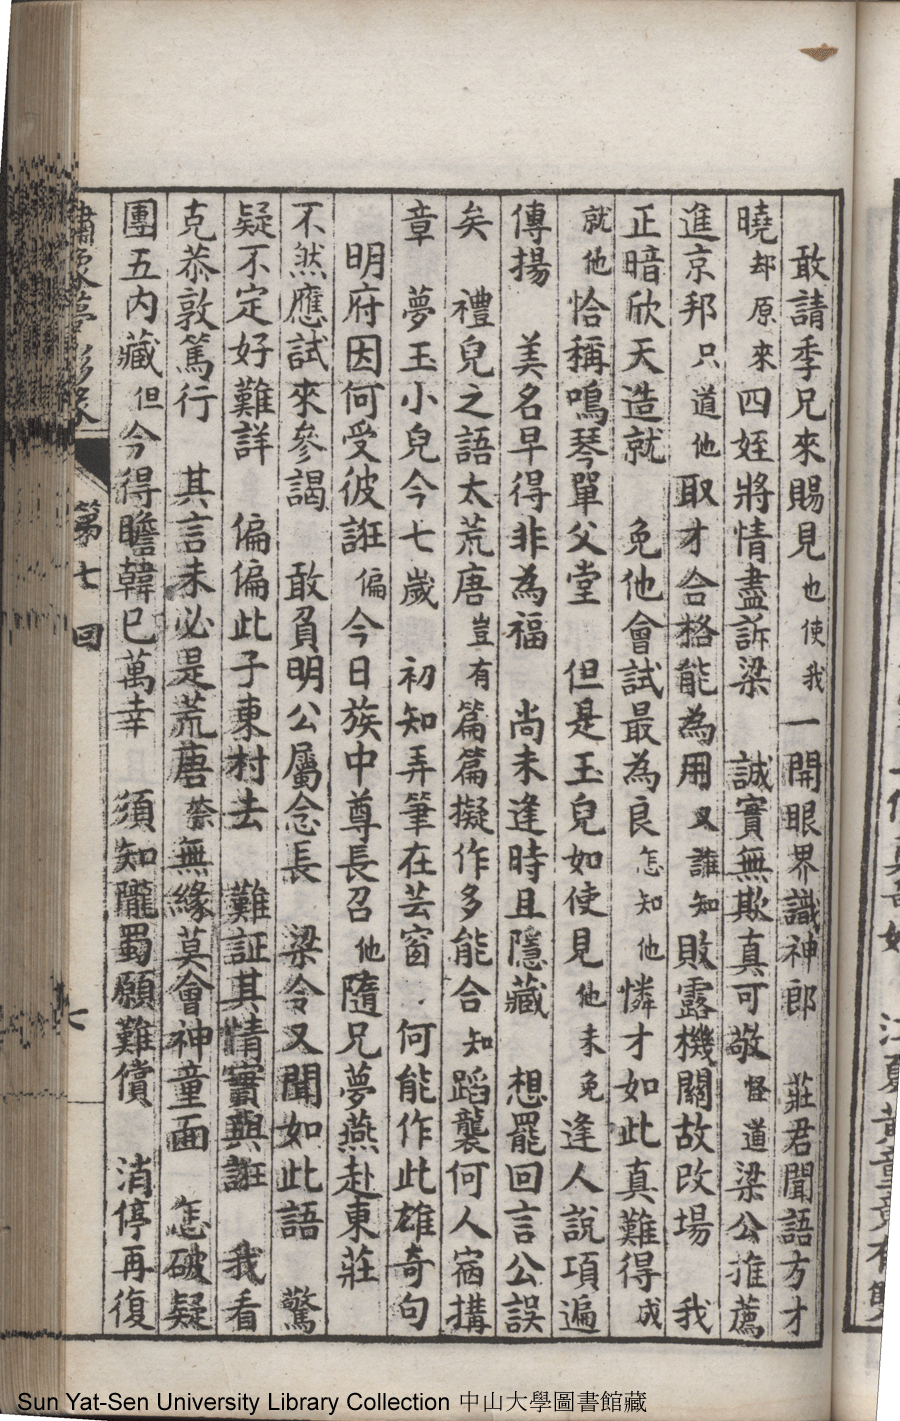 敢請季兄來賜見也使我一開眼界識神郎　莊君聞語方才
曉却原來四姪將情盡訴梁　誠實無欺真可敬怪道梁公推薦
進京邦只道他取才合格能為用又誰知敗露機關故改場　我
正暗欣天造就　免他會試最為良怎知他憐才如此真難得成
就他恰稱鳴琴單父堂　但是玉兒如使見他未免逢人說項遍
傳揚　美名早得非為福　尚未逢時且隱藏　想罷回言公誤
矣　禮兒之語太荒唐豈有篇篇擬作多能合知蹈襲何人宿搆
章　夢玉小兒今七歲　初知弄筆在芸窗　何能作此雄奇句
明府因何受彼誑偏今日族中尊長召他隨兄夢燕赴東莊
不然應試來參謁　敢負明公屬念長　梁令又聞如此語　驚
疑不定好難詳　偏偏此子東村去　難証其情實與誑　我看
克恭敦篤行　其言未必是荒唐柰無緣莫會神童面　怎破疑
團五內藏但今得瞻韓已萬幸　須知隴蜀願難償　消停再復
第七回
七
江夏黃童
Sun Yat-Sen University Library Collection 中山大學圖書館藏